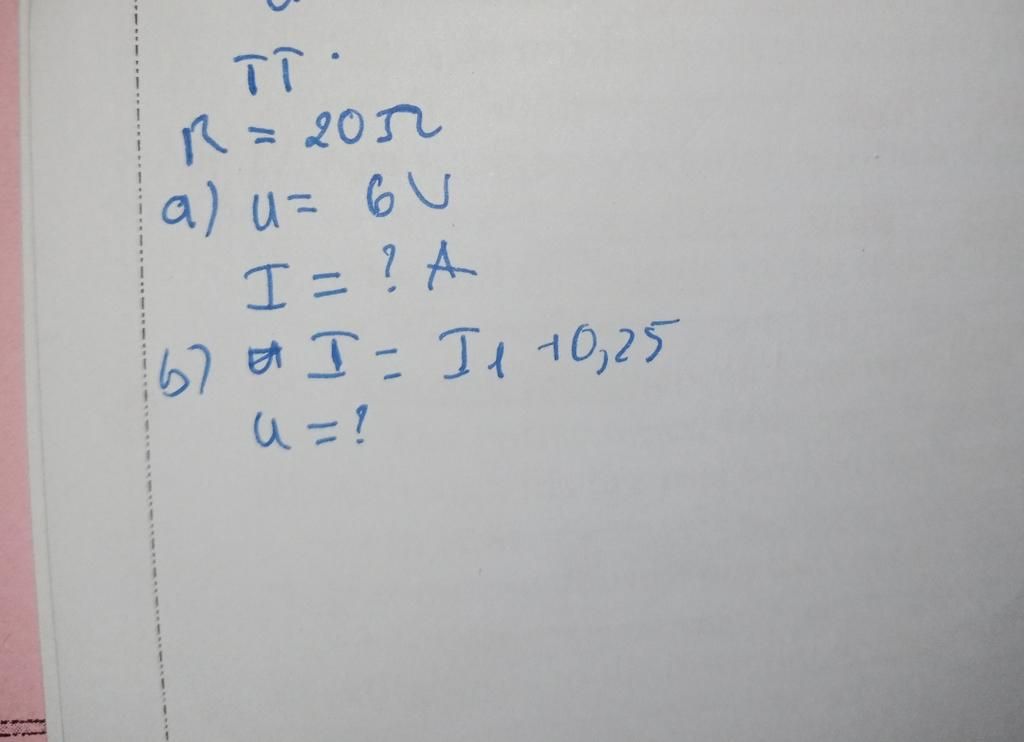 TT.
R = 20Ω
a) U = 6V
I = ? A
b) I = I1 + 0,25
U = ?